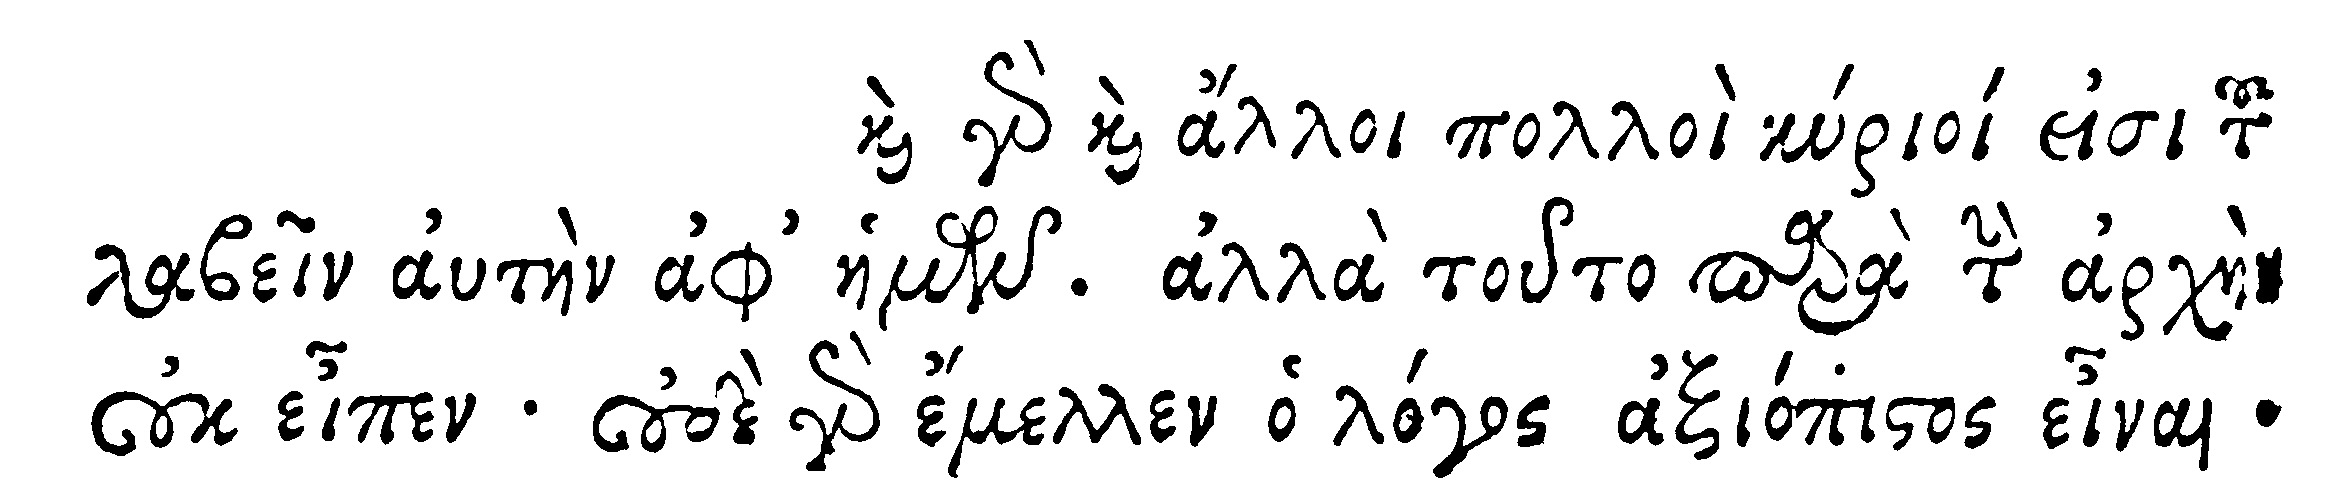 ϗ̀ γὰρ ϗ̀ ἄλλοι πολλοὶ κύριοί εἰσι τοῦ
λαβεῖν αὐτὴν ἀφ' ἡμῶν. ἀλλὰ τοῦτο παρὰ τὴν ἀρχὴν
οὐκ εἶπεν. οὐδὲ γὰρ ἔμελλεν ὁ λόγος ἀξιόπιστος εἶναι.